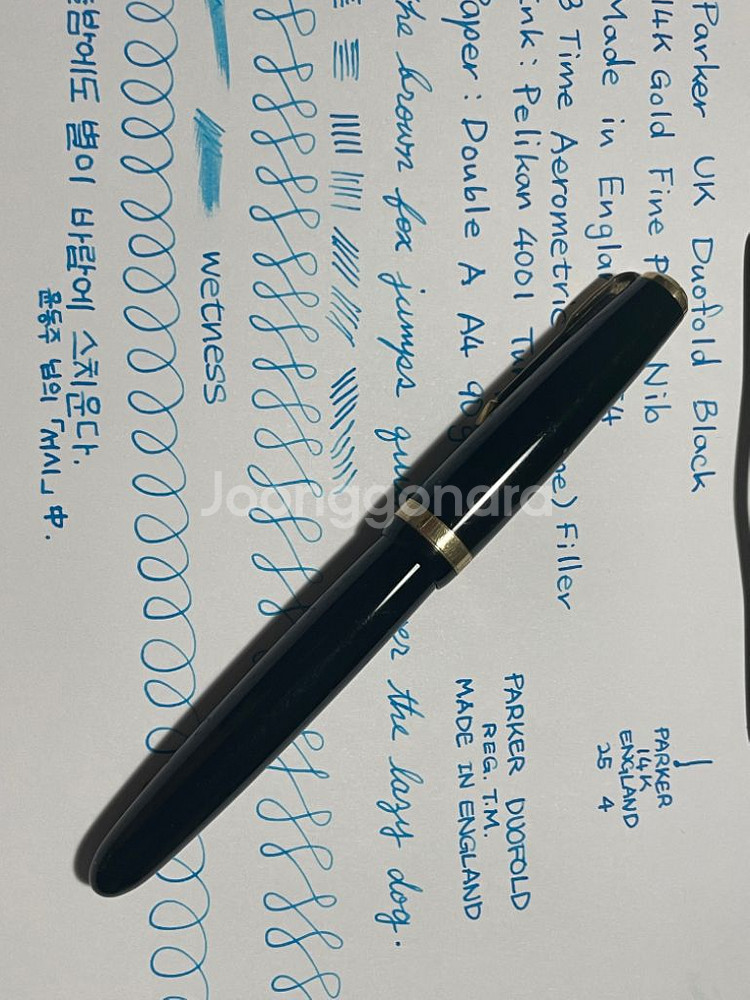 Parker UK Duofold Black
14K Gold Fine Nib
Made in England
3 Time Aerometric Filler
Ink: Pelikan 4001
Paper: Double A A4
the brown fox jumps the lazy dog.
wetness
밤에도 별이 바람에 스치운다.
윤동주 님의 「서시」 中.
PARKER DUOFOLD
REG. T.M.
MADE IN ENGLAND
PARKER
14K
ENGLAND
25 4
Joonggonara